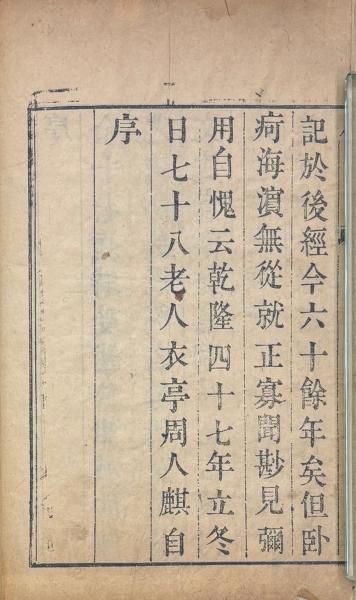 記於後經今六十餘年矣但卧
疴海濵無從就正寡聞尠見彌
用自愧云乾隆四十七年立冬
日七十八老人衣亭周人麒自
序